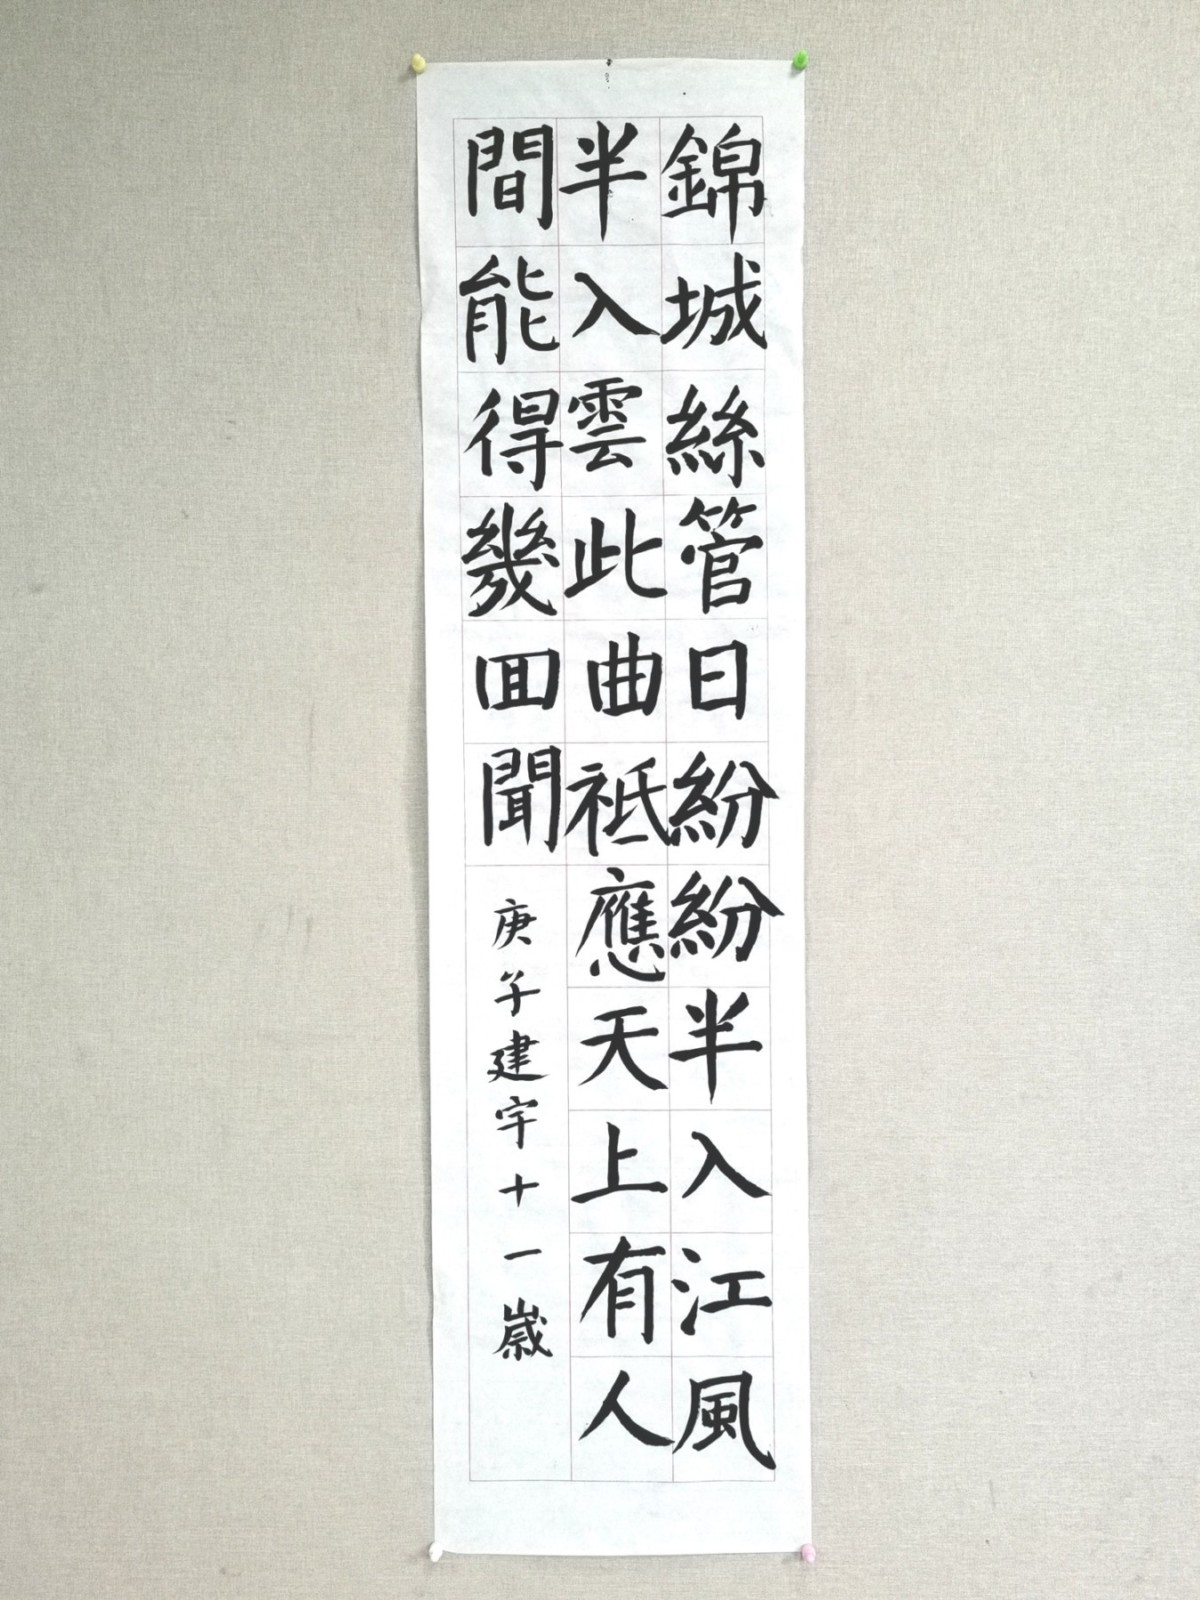 錦城絲管日紛紛半入江風
半入雲此曲祗應天上有人
間能得幾回聞
庚子建宇十一歲